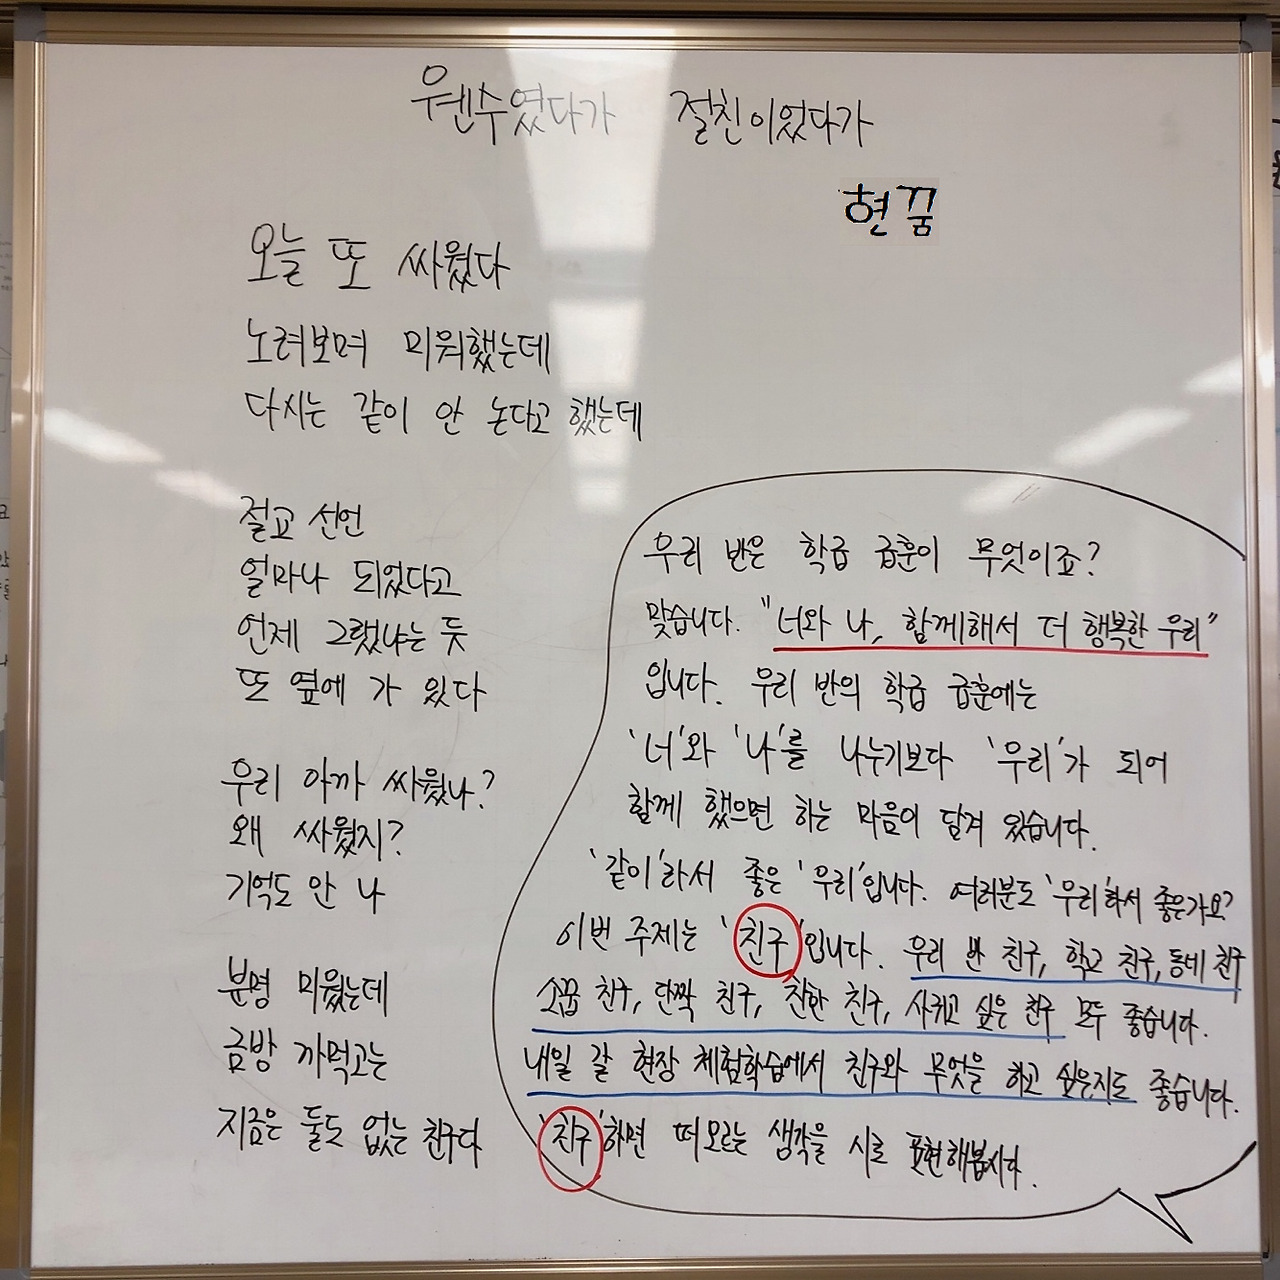 웬수였다가 절친이었다가
현꿈
오늘 또 싸웠다
노려보며 미워했는데
다시는 같이 안 논다고 했는데
절교 선언
얼마나 되었다고
언제 그랬냐는 듯
또 옆에 가 있다
우리 아까 싸웠나?
왜 싸웠지?
기억도 안 나
분명 미웠는데
금방 까먹고는
지금은 둘도 없는 친구다
우리 반은 학급 급훈이 무엇이죠?
맞습니다. "너와 나, 함께해서 더 행복한 우리"
입니다. 우리 반의 학급 급훈에는
'너'와 '나'를 나누기보다 '우리'가 되어
함께 했으면 하는 마음이 담겨 있습니다.
'같이'라서 좋은 '우리'입니다. 여러분도 '우리'라서 좋은가요?
이번 주제는 '친구'입니다. 우리 반 친구, 학교 친구, 동네 친구
소꿉 친구, 단짝 친구, 친한 친구, 사귀고 싶은 친구 모두 좋습니다.
내일 갈 현장 체험학습에서 친구와 무엇을 하고 싶은지도 좋습니다.
'친구'하면 떠오르는 생각을 시로 표현해봅시다.